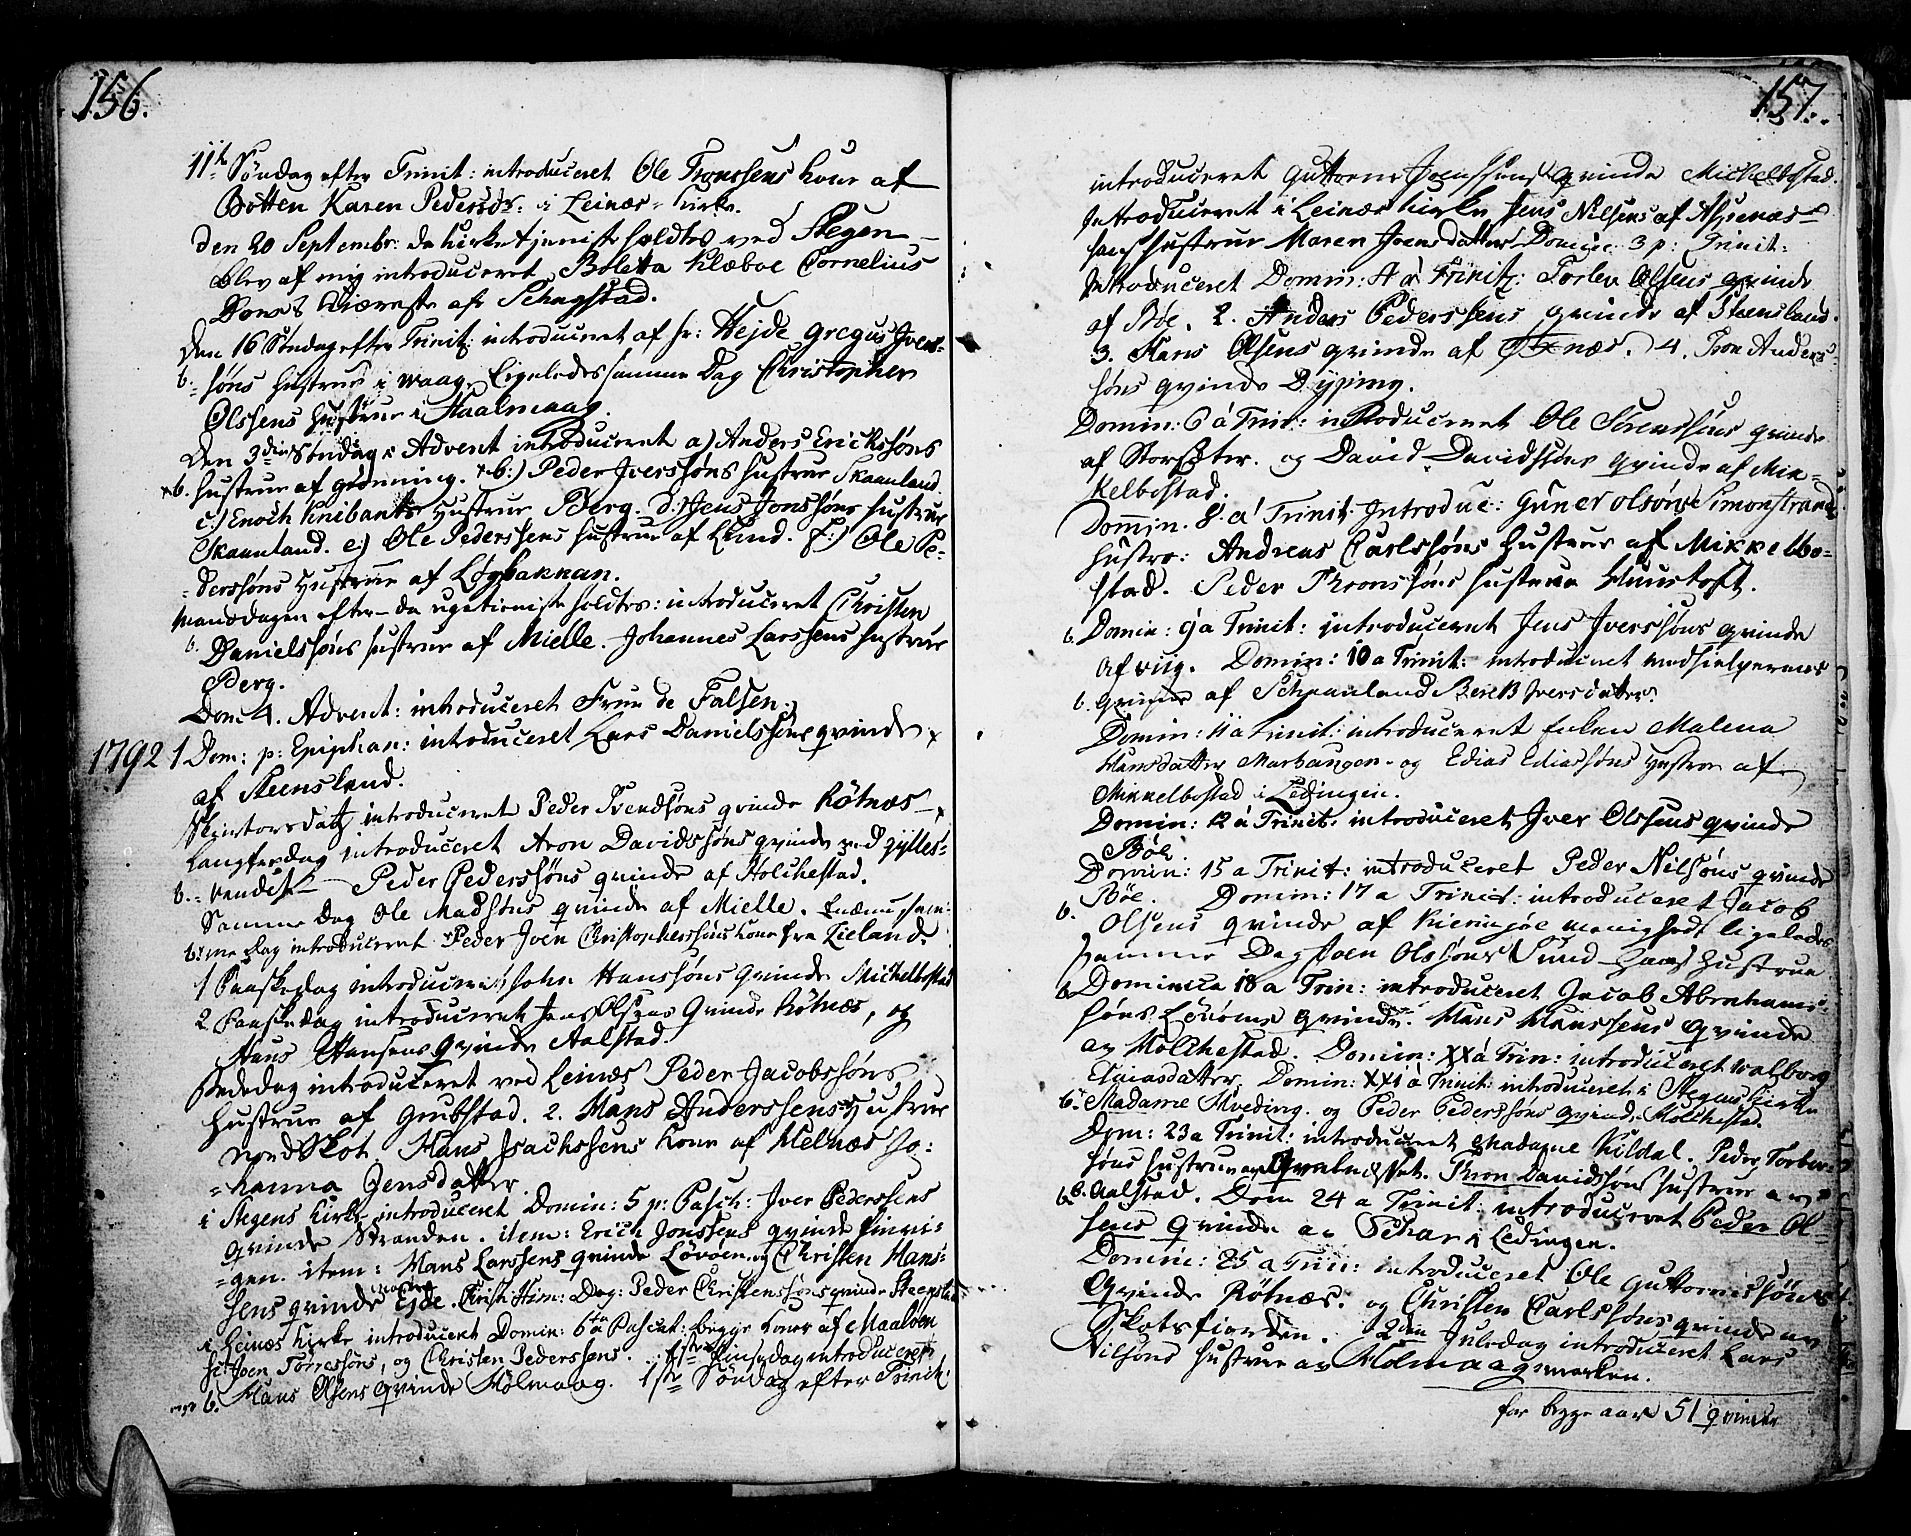 156.
11te Søndag efter Trinit: introduceret Ole Tronssens kone af
Botten Karen Pedersdr: i Leines-kirke.
den 20 Septembr: da kirketjeniste holdtes ved Stegen
blev af mig introduceret Boletta Klæboe Cornelius
Dons Kiæreste af Schagstad.
den 16 Søndag efter Trinit: introduceret af hr: Hejde Gregus Iver-
b:- søns hustrue i Waag. Ligeledes samme Dag Christopher
Olssens hustrue i Haalmaag.
Den 3die Søndag i Advent introduceret a) Anders Erickssøns
b. hustrue af grønning. b:) Peder Iverssøns hustrue Skaanland
c:) Enoch Knibants hustrue Berg. d:) Jens Jonssøns hustrue
Skaanland. e:) Ole Pederssens hustrue af Lund. f:) Ole Pe-
-derssøns hustrue af Løgbakkan.
Mandagen efter - da ugetieniste holdtes: introduceret Christen
b. Danielssøns hustrue af Mielle. Johannes Larssens hustrue
Berg.
Dom 4. Advent: introduceret Frue de Falsen.
1792 1 Dom: p: Epiphan: introduceret Lars Danielssøns qvinde
af Steensland.
Skiertorsdag introduceret Peder Svendsøns qvinde Røtnæs
Langfredag introduceret Aron Davidssøns qvinde ved gylles-
b. - vandet - Peder Pederssøns qvinde af Holchestad.
Samme Dag Ole Madsøns qvinde af Mielle. Endnu sam-
b: me Dag introduceret Peder Joen Christopherssøns kone fra Tieland.
1 Paaskedag introduceret John Hanssøns qvinde Michelbostad
2 Paaskedag introduceret Jens Olsens Qvinde Røtnæs, og
Hans Hansens Qvinde Aalstad.
Bededag introduceret ved Leines Peder Jacobssøns
Hustrue af Grubstad. 2. Hans Anderssens Hustrue
Nordskot. Hans Isachssens kone af Helnæs Jo-
-hanna Jensdatter
i Stegens Kirke introduceret Domin: 5 p: Pasch: Iver Pederssens
Qvinde Stranden. item: Erich Jonssens qvinde Finvi-
-gen. item: Hans Larssens qvinde Løvøen og Christen Hans-
sens qvinde Ejde. Christi Him: Dag: Peder Christenssøns qvinde
i Leines Kirke introduceret Domin: 6ta Pascat: begge koner af Maaløen
Joen Torressøns, og Christen Pederssens. 1ste Pinsedag introduceret
b. Hans Olsens qvinde Holmaag. 1ste Søndag efter Trinit:
157.
introduceret Guttorm Joenssens qvinde Michelbostad.
Introduceret i Leines kirke Jens Nilsens af Aspenæs
hans hustrue Maren Joensdatter Domin: 3 p: Trinit:
Introduceret Domin: 4 a Trinit: Torlev Olsens qvinde
af Bøe. 2. Anders Pederssens qvinde af Steensland.
3. Hans Olsens qvinde af næs. 4. Tron Anders-
søns qvinde Dyping.
Domin: 6 a Trin: introduceret Ole Sørenssøns qvinde
af Storsæter. og David Davidsøns qvinde af Mik-
kelbostad.
Domin. 8. a Trinit: Introduc: Guner olsøns Simonstrand
Hustro: Andreas Carlssøns hustrue af Mikkelbo-
stad. Peder Thronssøns hustrue Huustoft.
b. Domin: 9 a Trinit: introduceret Jens Iverssøns qvinde
af vug. Domin: 10 a Trinit: introduceret medhielperens
b. Qvinde af Schaanland Berit Iversdatter.
Domin: 11 a Trinit: introduceret Enken Malena
Hansdatter Marhaugen. og Edias Ediassøns hustroe af
Mikkelbostad i Lødingen.
Domin: 12 a Trinit: introduceret Iver Olssens qvinde
Bøe.
Domin: 15 a Trinit: introduceret Peder Nilsøns qvinde
Bøe. Domin: 17 a Trinit: introduceret Jacob
b. Olsens qvinde af menighed ligeledes
samme Dag Joen Olssøns Sund hans hustrue
b. Dominica 18 a Trin: introduceret Jacob Abrahams-
søns Løvøens qvinde. Hans Hanssens qvinde
av Holchestad. Domin: XX a Trin: introduceret Walborg
Eliasdatter. Domin: XXI a Trinit: introduceret i Stegens Kirke
b. Madame Hveding. og Peder Pederssøns qvinde Holchestad.
Dom: 23 a Trinit: introduceret Madame Kildal. Peder Torber-
søns hustrue av Qvalnesset. Thron Davidssøns hustrue av
b. Aalstad. Dom 24 a Trinit: introduceret Peder Ol-
sens qvinde av Schar i Lødingen.
Domin: 25 a Trin: introduceret Ole Guttormssøns
Qvinde Røtnæs. og Christen Carlssøns qvinde av
Skotsfiorden. 2den Juledag introduceret Lars
Nilsøns hustrue av Holmaagsmarken.
for begge aar 51 qvinder